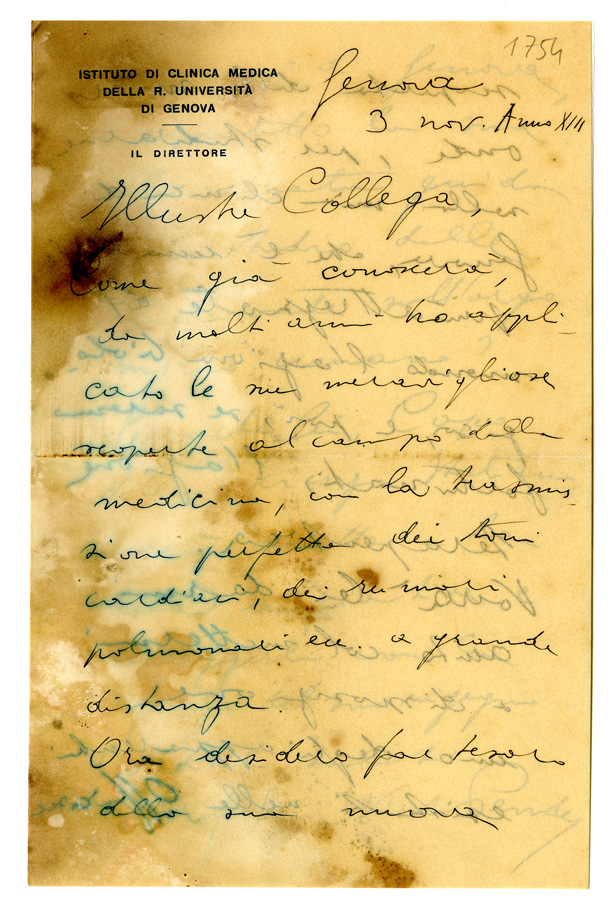 1754
ISTITUTO DI CLINICA MEDICA
DELLA R. UNIVERSITÀ
DI GENOVA
IL DIRETTORE
Genova
3 nov. Anno XIII
Illustre Collega,
Come già conoscerà,
da molti anni ho appli-
cato le sue meravigliose
scoperte al campo della
medicina, con la trasmis-
sione perfetta dei toni
cardiaci, dei rumori
polmonari ecc. a grande
distanza.
Ora desidero far tesoro
della sua nuova